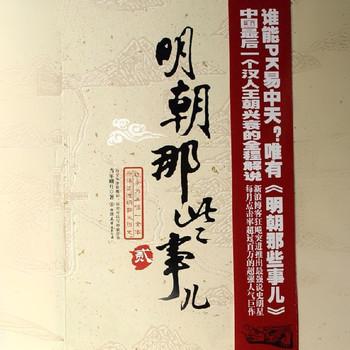 谁能PK易中天?唯有《明朝那些事儿》
中国最后一个汉人王朝兴衰的全程解说
新浪博客狂飚突进推出最强说史明星
每月点击率超过百万的超强人气巨作
明朝那些事儿
贰
当年明月 著